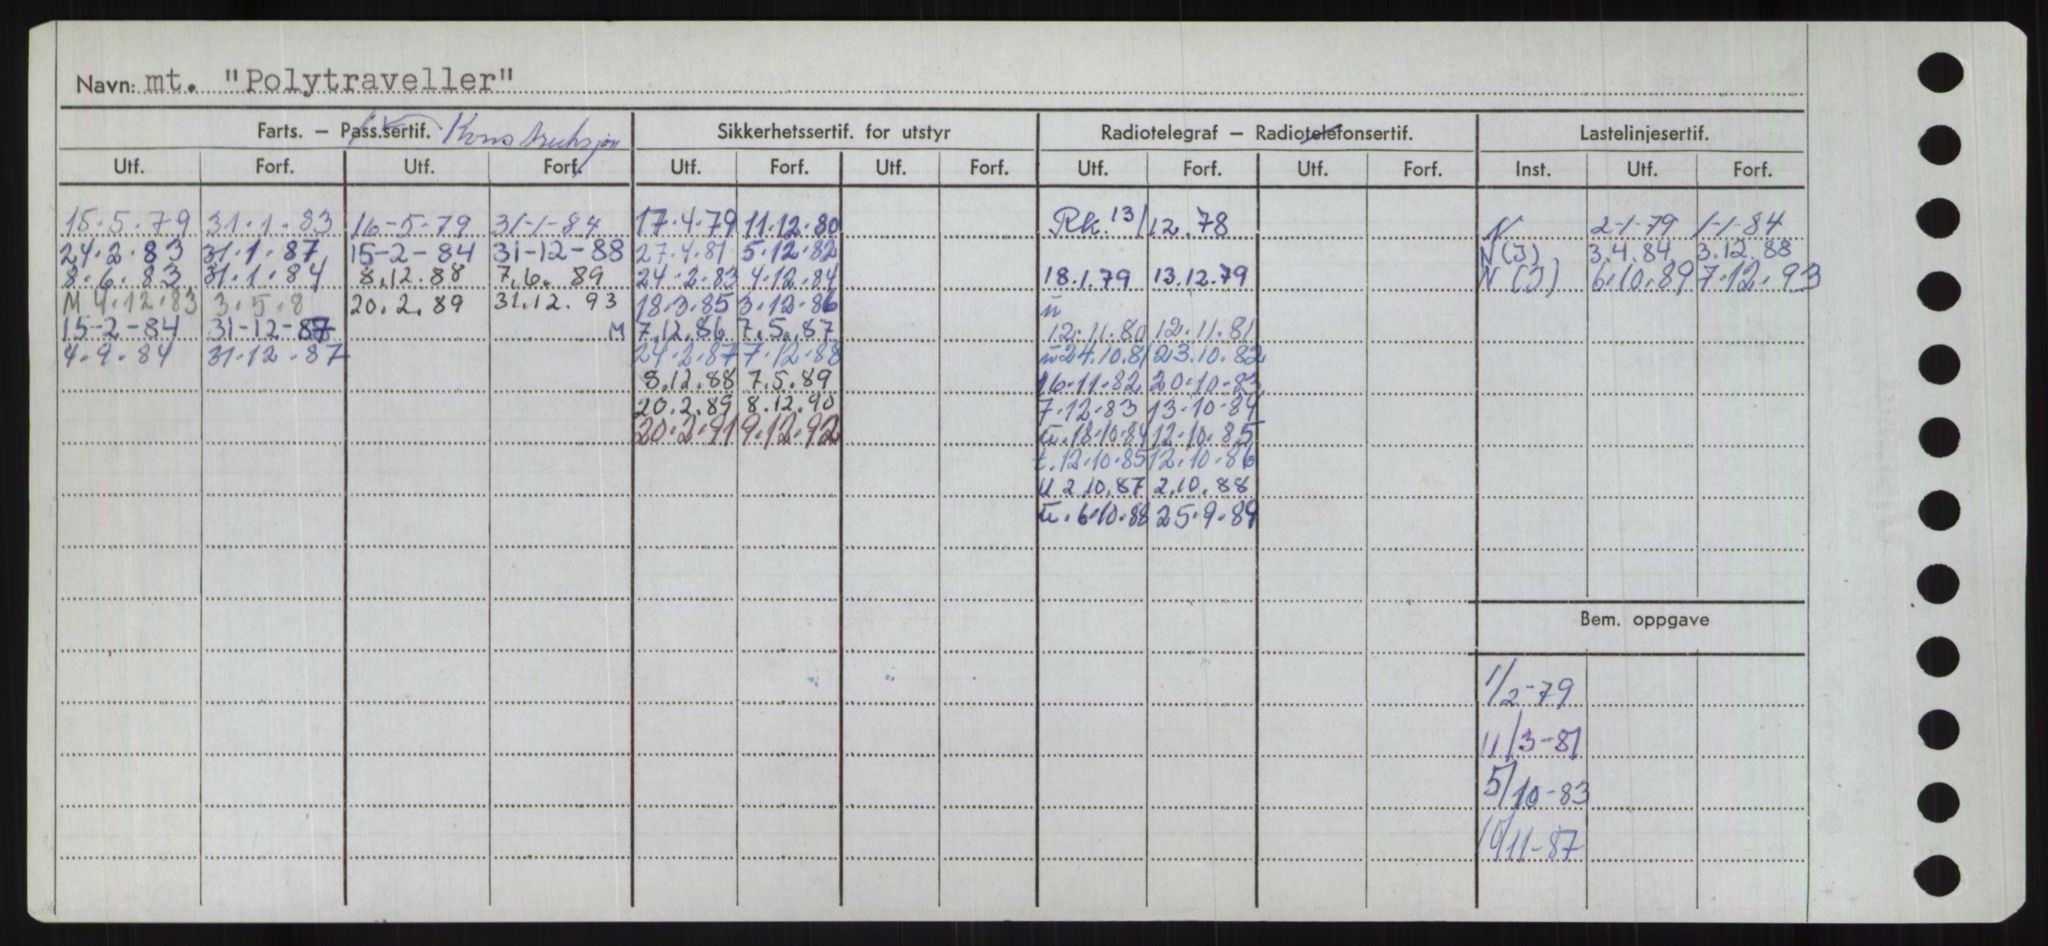 Navn: mt. "Polytraveller"
Farts. – Pass.sertif. Konstruksjon Sikkerhetssertif. for utstyr Radiotelegraf – Radiotelefonsertif. Lastelinjesertif.
Utf. Forf. Utf. Forf. Utf. Forf. Utf. Forf. Utf. Forf. Utf. Forf. Inst. Utf. Forf.
15.5.79 31.1.83 16-5-79 31-1-84 17.4.79 11.12.80 Rk. 13/12.78 N 2-1-79 1-1-84
24.2.83 31.1.87 15-2-84 31-12-88 27.4.81 5.12.82 N(I) 3.4.84 3.12.88
8.6.83 31.1.84 8.12.88 7.6.89 24.2.83 4.12.84 18.1.79 13.12.79 N(I) 6.10.89 7.12.93
M 4.12.83 3.5.8 20.2.89 31.12.93 18.3.85 3.12.86 u
15-2-84 31-12-87 M 7.12.86 7.5.87 12.11.80 12.11.81
4.9.84 31.12.87 24.2.87 7.12.88 u 24.10.81 23.10.82
8.12.88 7.5.89 16.11.82 20.10.83
20.2.89 8.12.90 7.12.83 13.10.84
20.2.91 9.12.92 u. 18.10.84 12.10.85
t. 12.10.85 12.10.86
u 2.10.87 2.10.88
u. 6.10.88 25.9.89
Bem. oppgave
1/2-79
11/3-81
5/10-83
/11-87